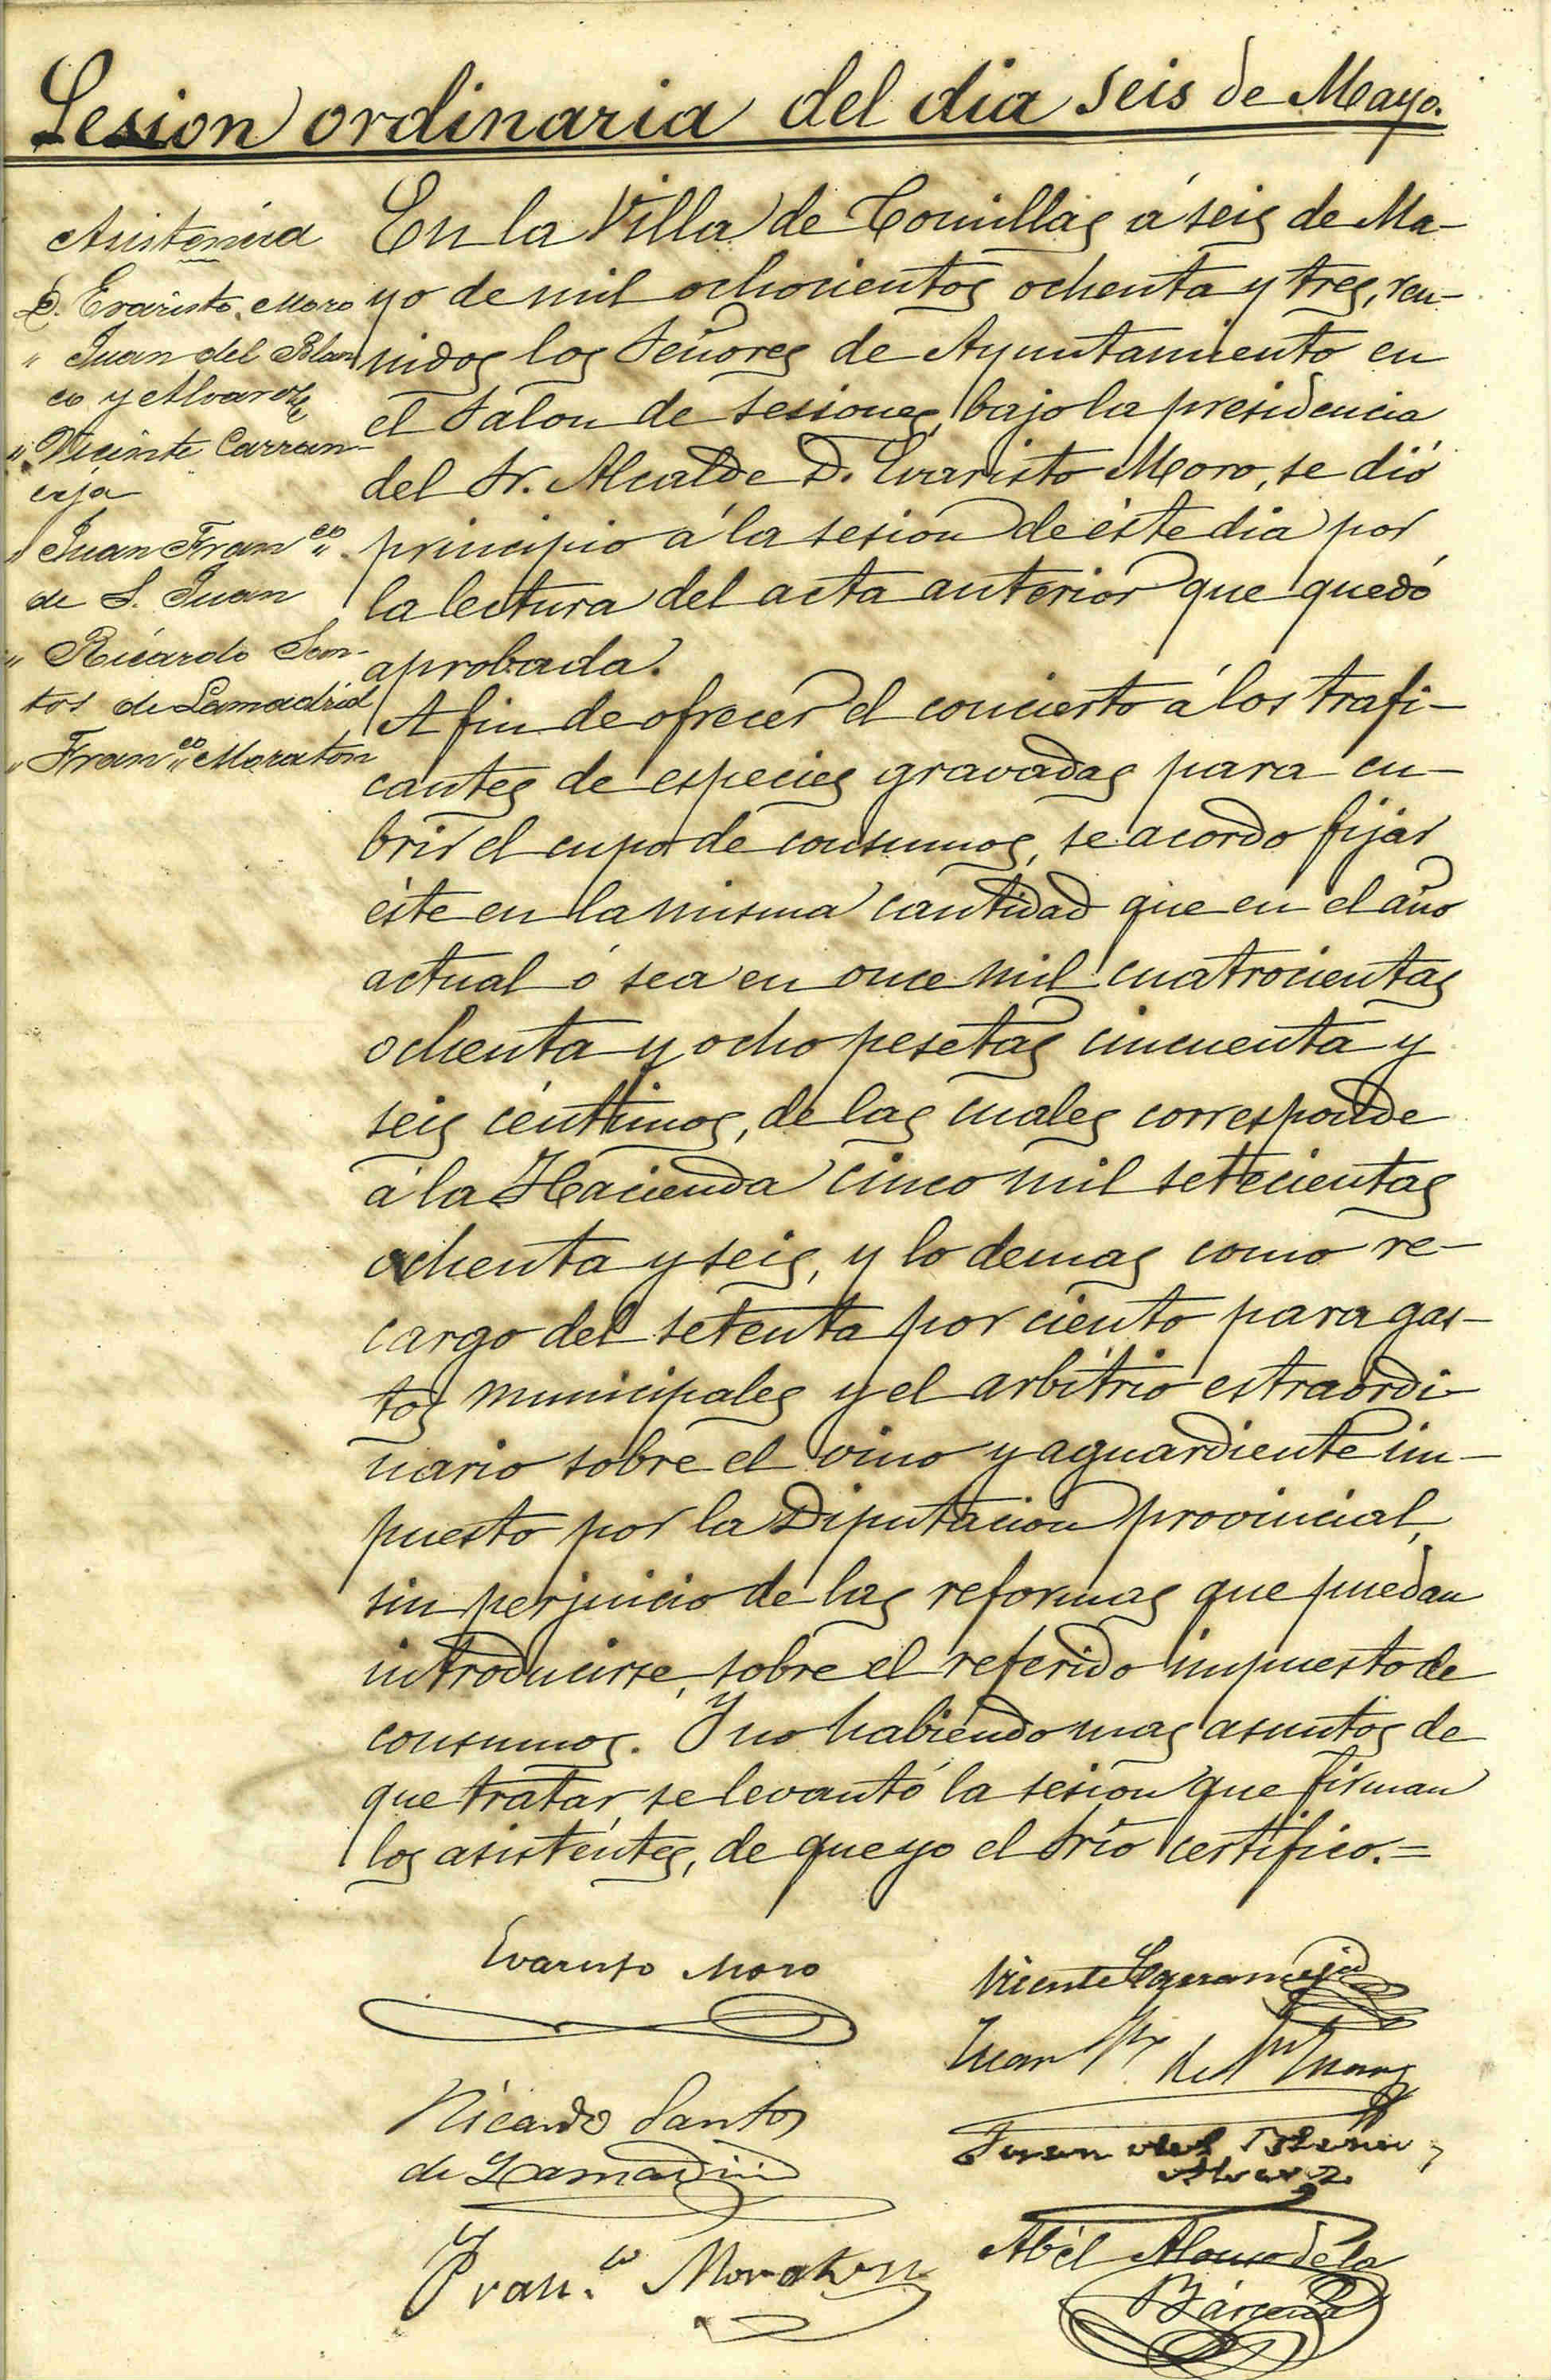 Sesion ordinaria del dia seis de Mayo.
Asistencia
D. Evaristo Moro
" Juan del Blan
co y Alvarez
" Vicente Carran-
ceja
" Juan Fran.co
de S. Juan
" Ricardo San-
tos de Lamadrid
" Fran.co Moraton
En la Villa de Comillas á seis de Ma-
yo de mil ochocientos ochenta y tres, reu-
nidos los Señores de Ayuntamiento en
el Salon de sesiones, bajo la presidencia
del Sr. Alcalde D. Evaristo Moro, se dió
principio á la sesion de éste dia por
la lectura del acta anterior que quedó
aprobada.
A fin de ofrecer el concierto á los trafi-
cantes de especies gravadas para cu-
brir el cupo de consumos, se acordo fijar
éste en la misma cantidad que en el año
actual ó sea en once mil cuatrocientas
ochenta y ocho pesetas cincuenta y
seis céntimos, de las cuales corresponde
á la Hacienda cinco mil setecientas
ochenta y seis, y lo demas como re-
cargo del setenta por ciento para gas-
tos municipales y el arbitrio estraordi-
nario sobre el vino y aguardiente im-
puesto por la Diputacion provincial,
sin perjuicio de las reformas que puedan
introducirse, sobre el referido impuesto de
consumos. Y no habiendo mas asuntos de
que tratar, se levantó la sesion que firman
los asistentes, de que yo el Srio certifico.=
Evaristo Moro
Vicente Carranceja
Juan Fr de Sn Juan
Ricardo Santos
de Lamadrid
Juan del Blanco y
Alvarez
Fran.co Moraton
Abél Alonso de la
Bárcena